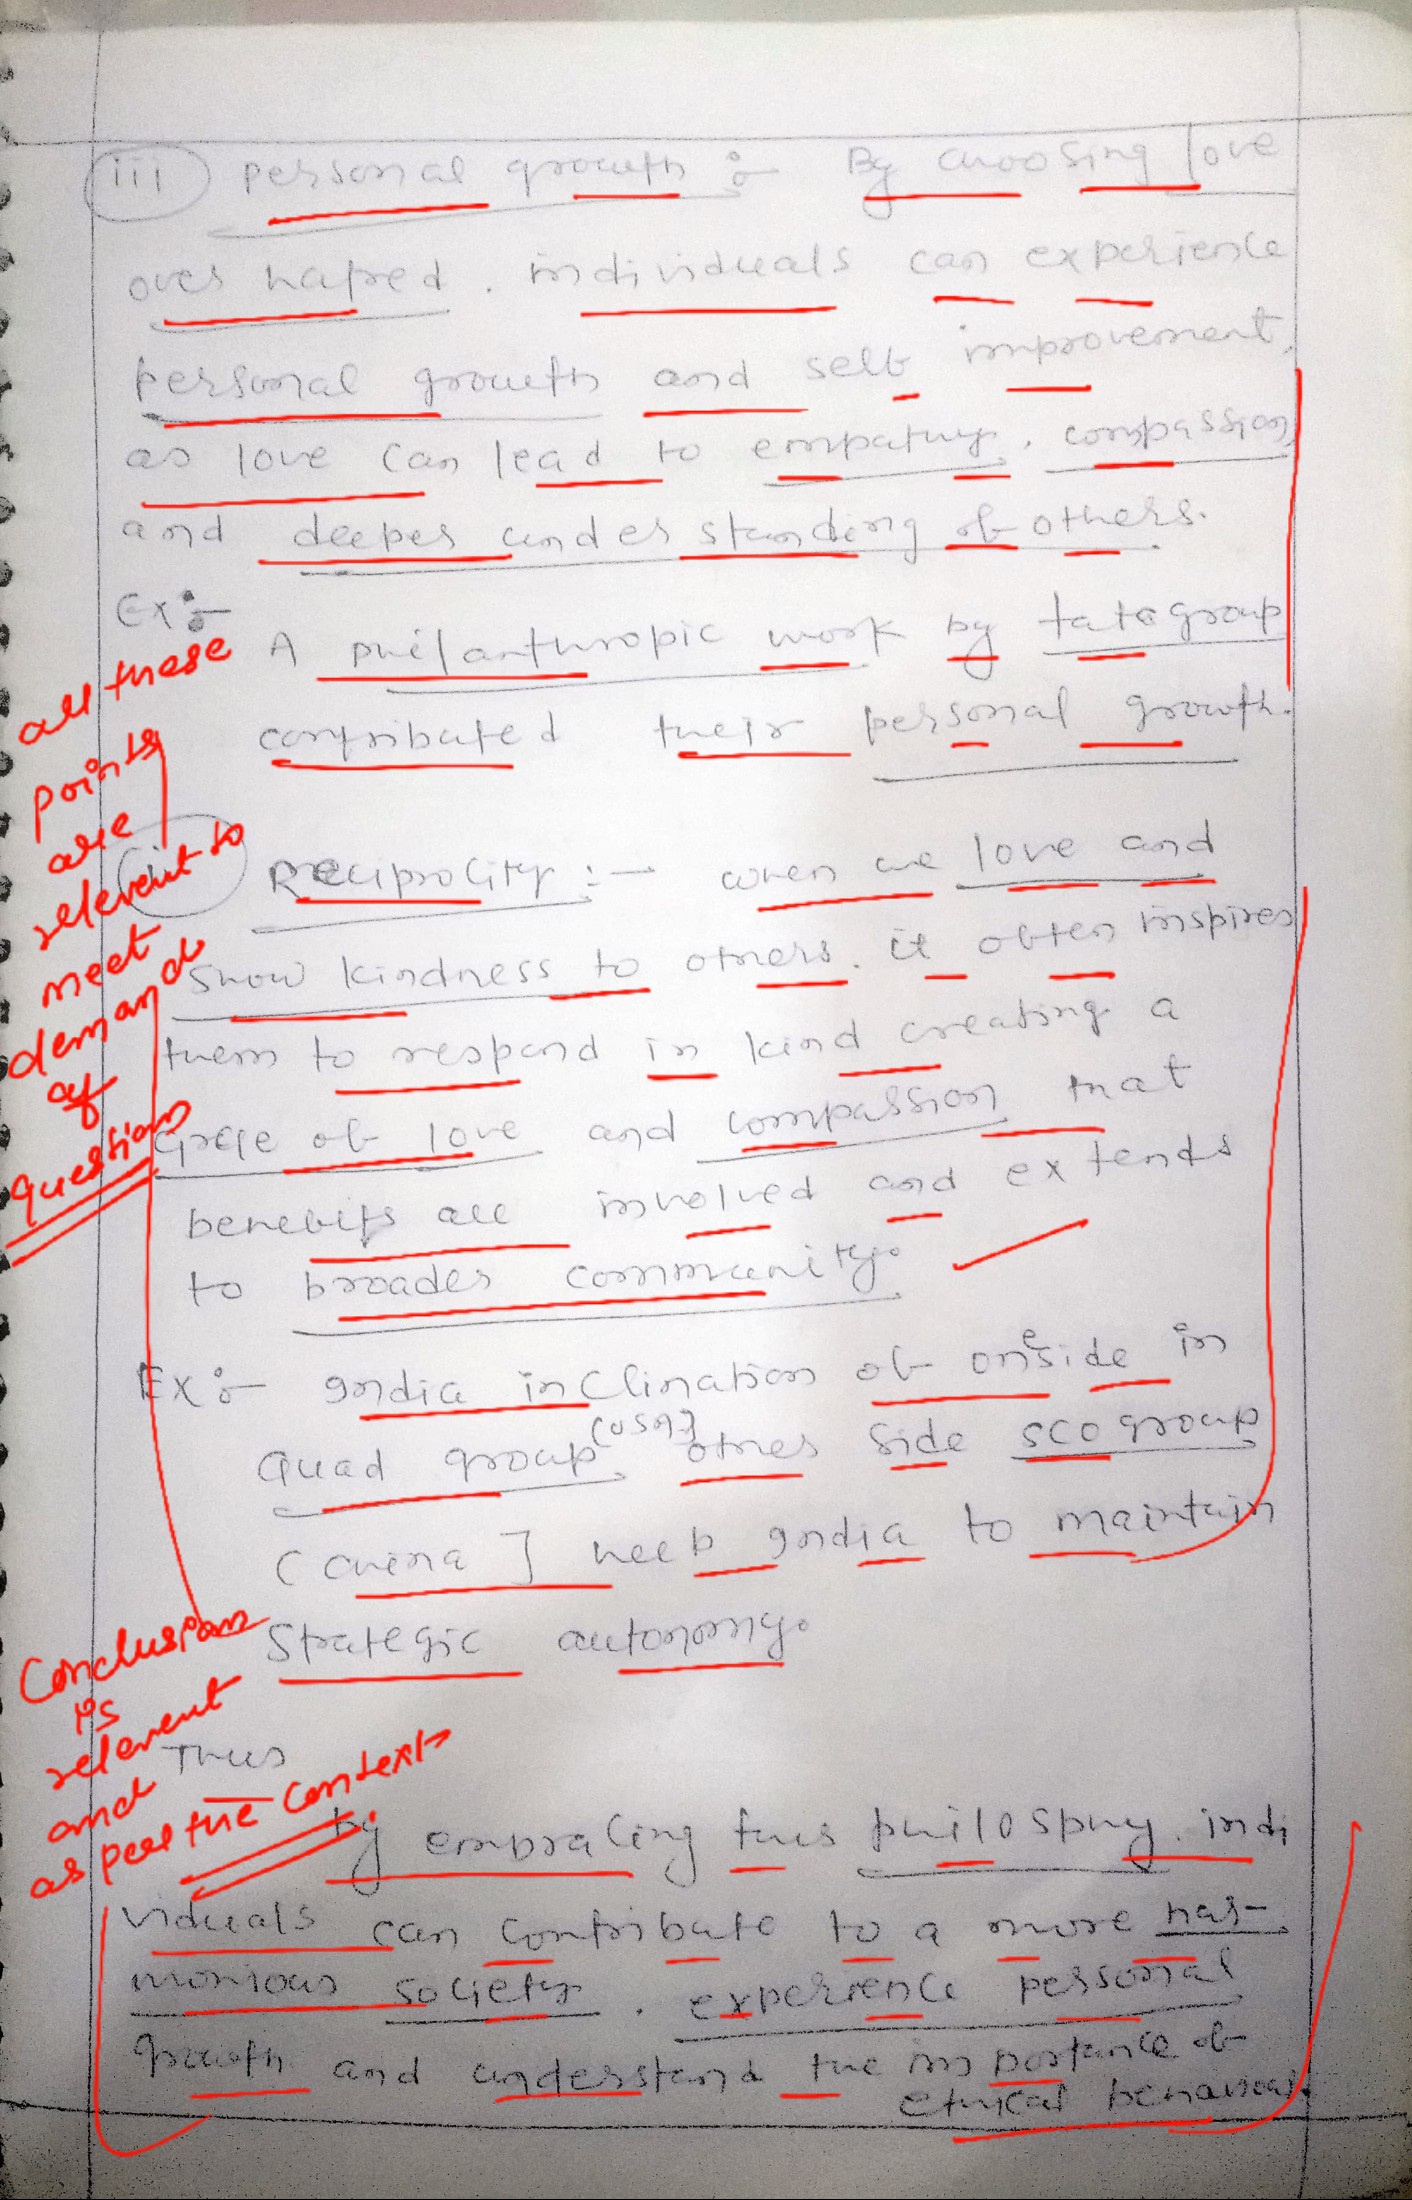 iii personal growth :- By choosing love
over hatred, individuals can experience
personal growth and self improvement,
as love can lead to empathy, compassion,
and deeper understanding of others.
Ex:-
A philanthropic work by tata group
contributed their personal growth.
all these
points
are
relevent to
meet
demand
of
question
Reciprocity :- when we love and
show kindness to others, it often inspires
them to respond in kind creating a
circle of love and compassion that
benefits all involved and extends
to broader community.
Ex:- India inclination of one side in
Quad group (USA) other side SCO group
(China] help India to maintain
Strategic autonomy.
Conclusion
is
relevent
and
as per the context
Thus
by embracing this philosphy, indi
viduals can contribute to a more har-
monious society, experience personal
growth and understand the importance of
ethical behaviour.